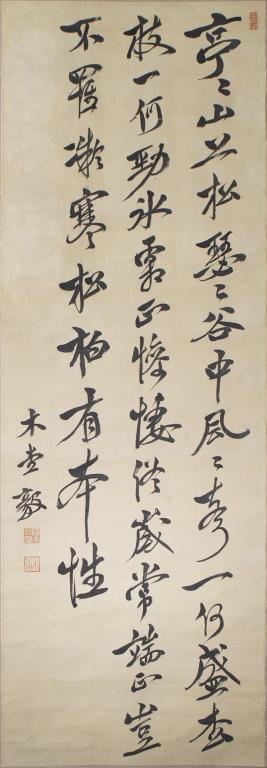 亭〻山上松瑟〻谷中風〻聲一何盛松
枝一何勁冰霜正慘悽終歲常端正豈
不罹凝寒松柏有本性
木堂毅